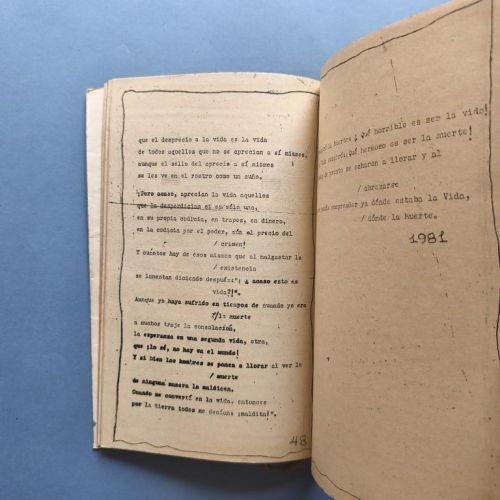 que el desprecio a la vida es la vida
de todos aquellos que no se aprecian a sí mismos,
aunque el sello del aprecio a sí mismos
se les ve en el rostro como un cuño.
¡Pero acaso, aprecian la vida aquellos
que la desperdician en sólo uno,
en su propia codicia, en trapos, en dinero,
en la codicia por el poder, aún al precio del
/ crimen!
Y cuántos hay de esos mismos que al malgastar la
/ existencia
se lamentan diciendo después:"¿ acaso esto es
vida?!".
Aunque ya haya sufrido en tiempos de cuando yo era
/ muerte
a muchos traje la consolación,
la esperanza en una segunda vida, otra,
que ¡lo sé, no hay en el mundo!
Y si bien los hombres se ponen a llorar al ver la
/ muerte
de ninguna manera la maldicen.
Cuando me convertí en la vida, entonces
por la tierra todos me decían: ¡maldita!".
48
la Muerte: ¡ qué horrible es ser la vida!
qué hermoso es ser la muerte!
se echaron a llorar y al
/ abrazarse
comprender ya dónde estaba la Vida,
/ dónde la Muerte.
1981